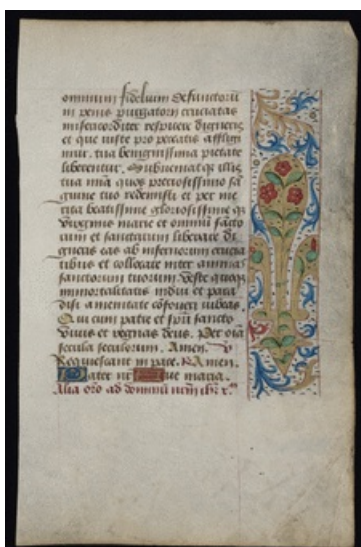 omnium fidelium defunctorũ
in penis purgatorii cruciatas
misericorditer respicere digneris
et que iuste pro peccatis affligũ
tur, tua benignissima pietate
liberentur. Subueniatqꝫ illis
tua mĩa quos preciosissimo sã
guine tuo redemisti et per me
rita beatissime gloriosissime qꝫ
virginis marie et omniũ sãcto
rum et sanctarum liberare di
gneris eas ab infernorum crucia
tibus et collocare inter animas
sanctorum tuorum. Veste quoqꝫ
immortalitatis indui et para
disi amenitate cõfoueri iubeas.
Qui cum patre et spũ sancto
viuis et regnas deus. Per oĩa
secula seculorum. Amen. v
Requiescant in pace. R Amen.
Pater nr̃ Aue maria.
Alia orõ ad dominũ